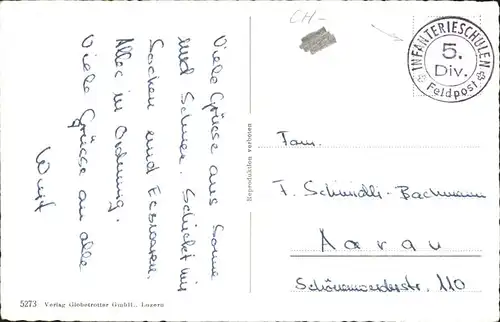 Viele Grüsse aus Sonne
und Schnee. Schickt mir
Socken und Esswaren.
Alles in Ordnung.
Viele Grüsse an alle
CH-
INFANTERIESCHULEN
5.
Div.
Feldpost
Reproduktion verboten
Fam.
T. Schmidli-Bachmann
Aarau
Schönenwerderstr. 110
5273 Verlag Globetrotter GmbH., Luzern